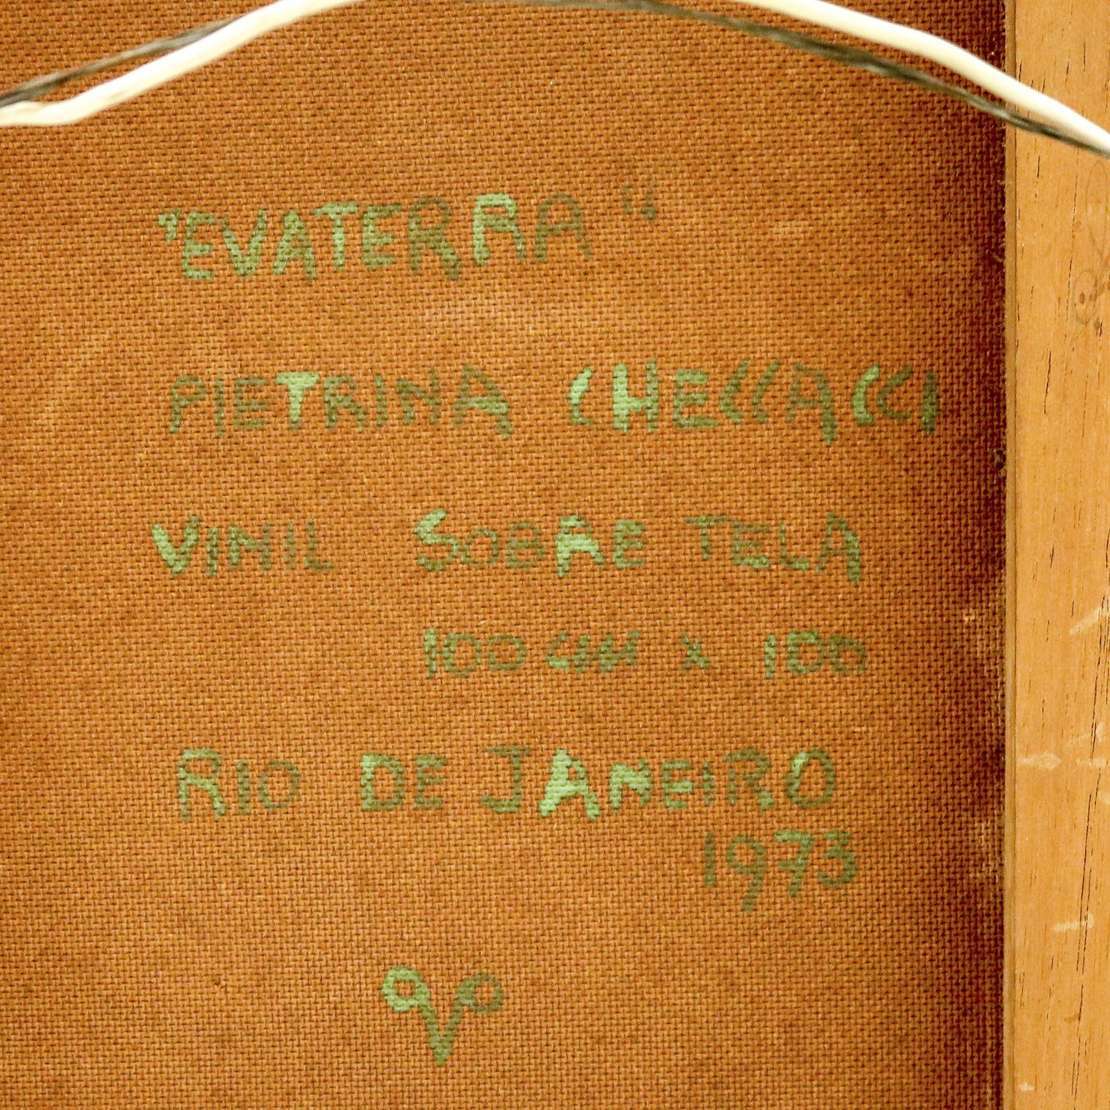 "EVATERRA"
PIETRINA CHECCACCI
VINIL SOBRE TELA
100 CM X 100
RIO DE JANEIRO
1973